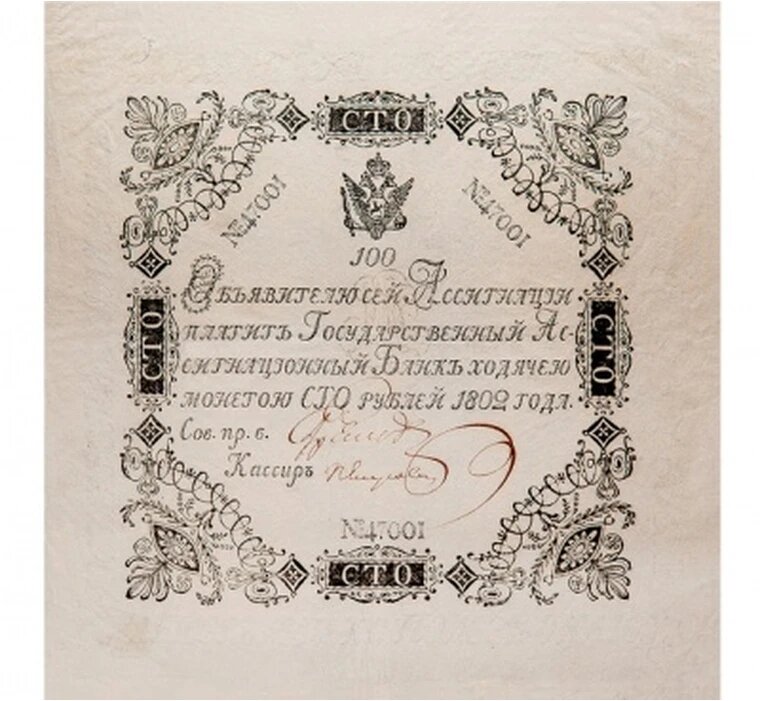 СТО
№47001 №47001
100
Объявителю сей Ассигнации
платитъ Государственный Ас-
сигнационный Банкъ ходячею
монетою СТО рублей 1802 года.
СТО СТО
Сов. пр. в.
Кассиръ
№47001
СТО